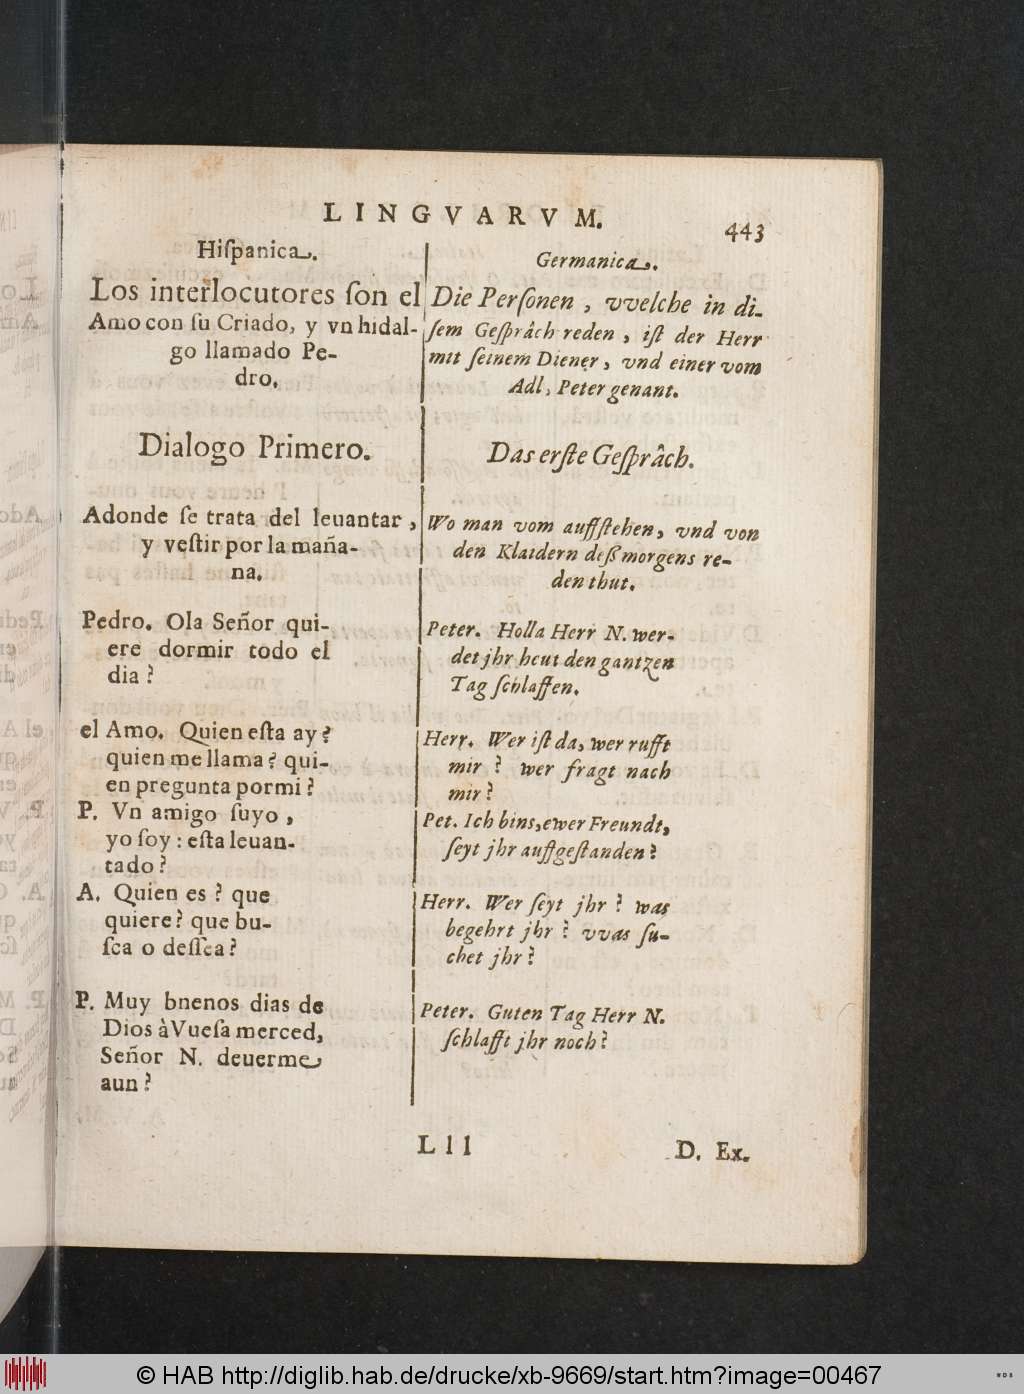 LINGVARVM.
443
Hiſpanica.
Los interlocutores ſon el
Amo con ſu Criado, y vn hidal-
go llamado Pe-
dro.
Dialogo Primero.
Adonde ſe trata del leuantar,
y veſtir por la maña-
na.
Pedro. Ola Señor qui-
ere dormir todo el
dia?
el Amo. Quien eſta ay?
quien me llama? qui-
en pregunta por mi?
P. Vn amigo ſuyo,
yo ſoy: eſta leuan-
tado?
A. Quien es? que
quiere? que bu-
ſca o deſſea?
P. Muy bnenos dias de
Dios à Vueſa merced,
Señor N. deuerme
aun?
Germanica.
Die Perſonen, vvelche in di-
ſem Geſprâch reden, iſt der Herr
mit ſeinem Diener, vnd einer vom
Adl, Peter genant.
Das erſte Geſprâch.
Wo man vom auffſtehen, vnd von
den Klaidern deß morgens re-
den thut.
Peter. Holla Herr N. wer-
det jhr heut den gantzen
Tag ſchlaffen.
Herr. Wer iſt da, wer rufft
mir? wer fragt nach
mir?
Pet. Ich bins, ewer Freundt,
ſeyt jhr auffgeſtanden?
Herr. Wer ſeyt jhr? was
begehrt jhr? vvas ſu-
chet jhr?
Peter. Guten Tag Herr N.
ſchlafft jhr noch?
Lll
D. Ex.
© HAB http://diglib.hab.de/drucke/xb-9669/start.htm?image=00467